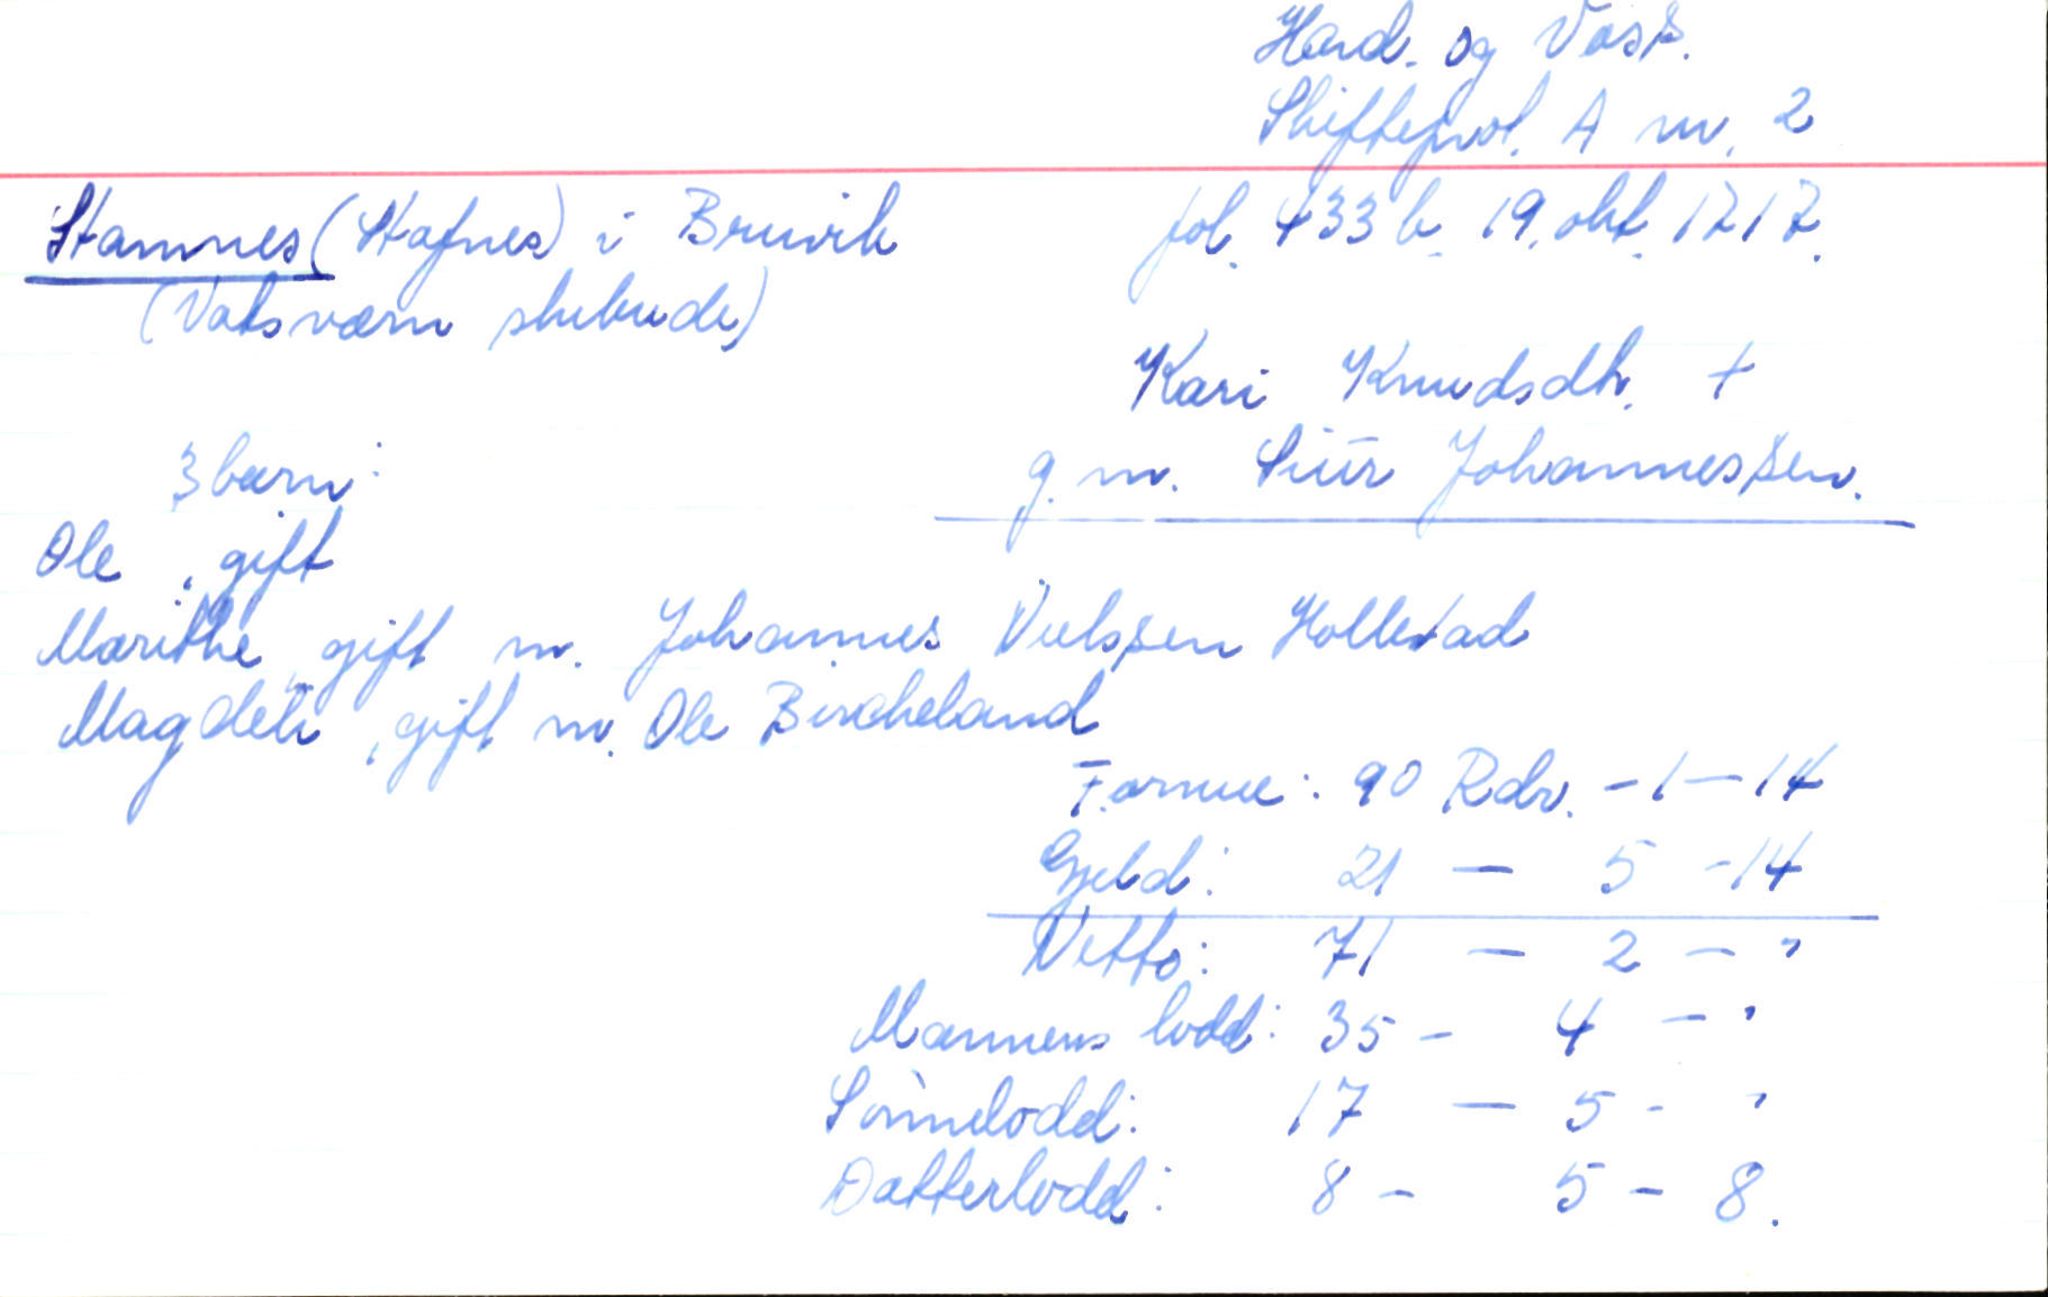 Hard. og Voss.
Skifteprot. A nr. 2
Stamnes (Stafnes) i Bruvik
fol. 433 b. 19. okt. 1717.
(Vatsværn skibude)
Kari Knudsdtr. +
3 barn:
g. m. Siur Johannessen.
Ole, gift
Marithe, gift m. Johannes Nielssen Hollestad
Magdeli, gift m. Ole Bircheland
Formue: 90 Rdr. - 1 - 14
Gjeld: 21 - 5 - 14
Netto: 71 - 2 - "
Mannens lodd: 35 - 4 - "
Sønnelodd: 17 - 5 - "
Datterlodd: 8 - 5 - 8.